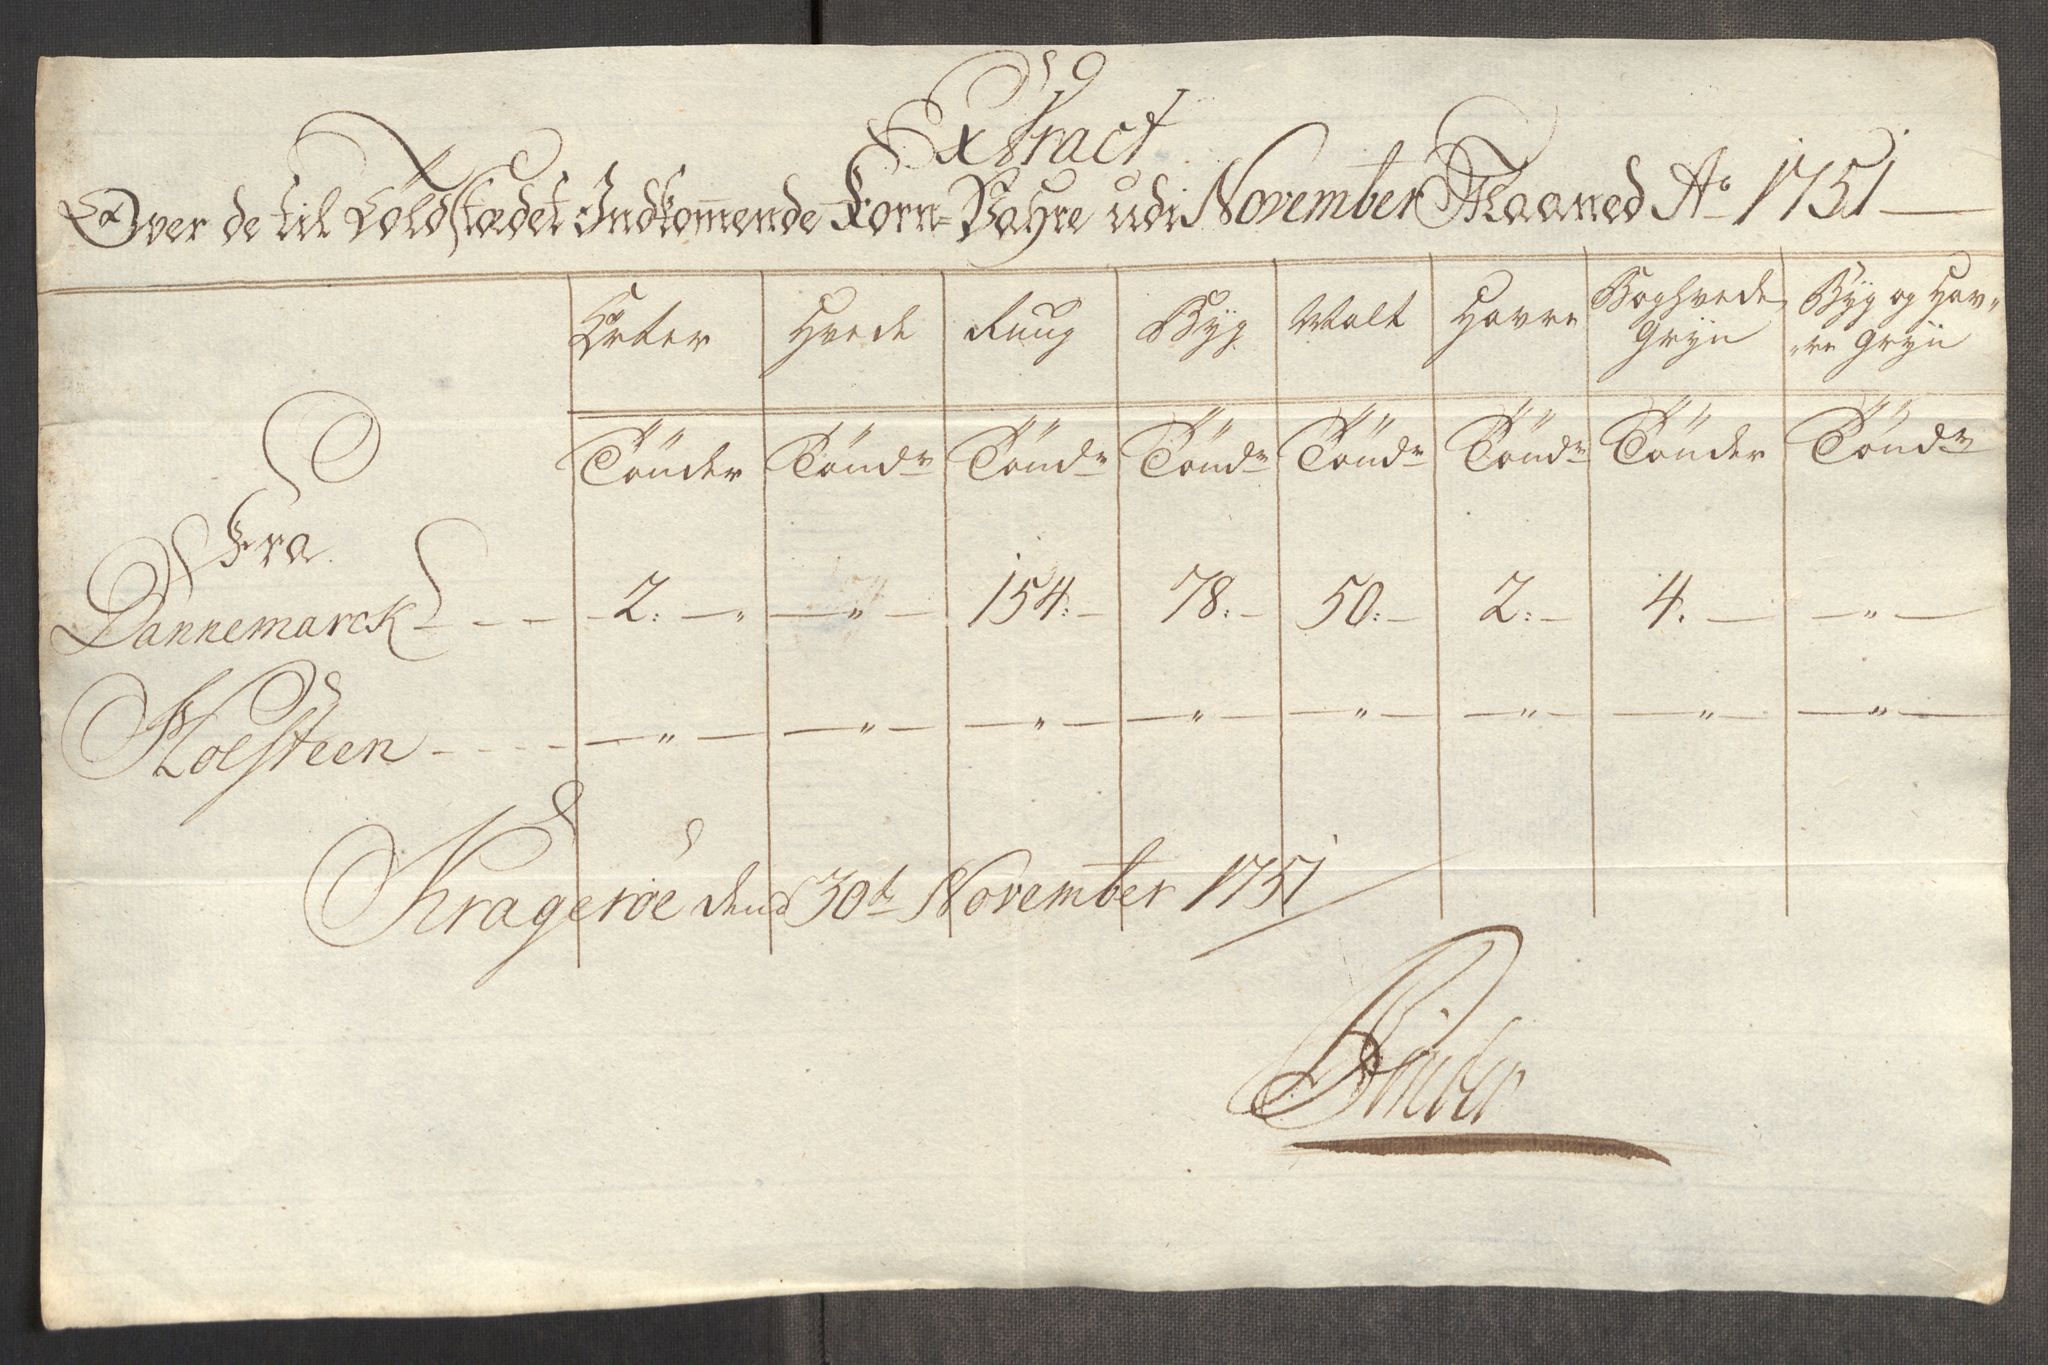 Extract
Over de til Toldstædet Indkom̅ende Korn-Vahre udi November Maaned Aº 1751
Erter Hvede Ruug Byg Malt Havre Boghvede Gryn Byg og Hav„ „re Gryn
Tönder Tönd^r Tönd^r Tönd^r Tönd^r Tönd^r Tönder Tönd^r
Fra
Dannemarck - - - 2: — „ — „ — 154: — 78: — 50: — 2: — 4. — — „ —
Holsteen - - - — „ — — „ — — „ — — „ — — „ — — „ — — „ — — „ —
Krageröe den 30te November 1751